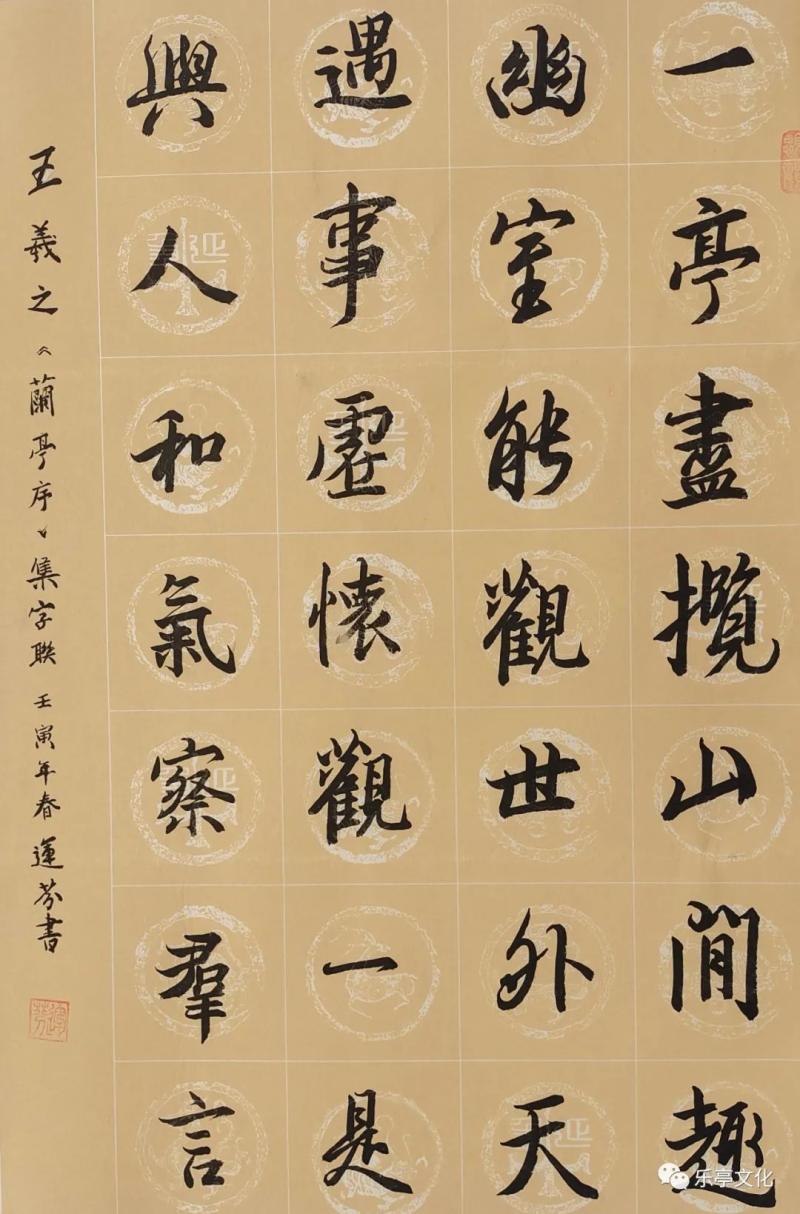 一亭盡攬山間趣
幽室能觀世外天
遇事虛懷觀一是
與人和氣察羣言
王羲之《蘭亭序》集字聯 壬寅年春 運芬書
運芬
乐亭文化